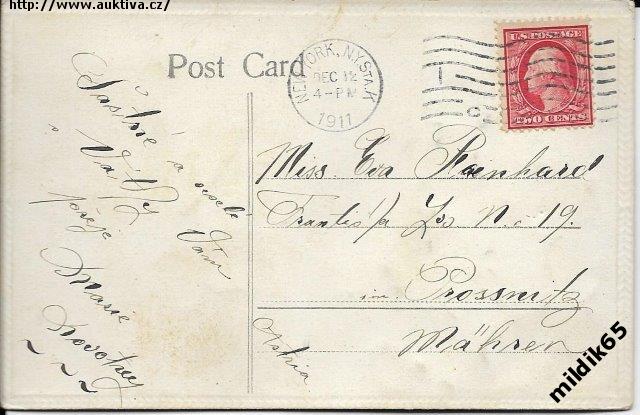 http://www.auktiva.cz/
Post Card
NEW YORK, N.Y. STA. K
DEC 12
4-PM
1911
U.S. POSTAGE
TWO CENTS
Šťastné a veselé
Vám
přeje
Marie
Novotny
Miss Eva
No 19.
im Prossnitz
Mähren
Astria
mildik65